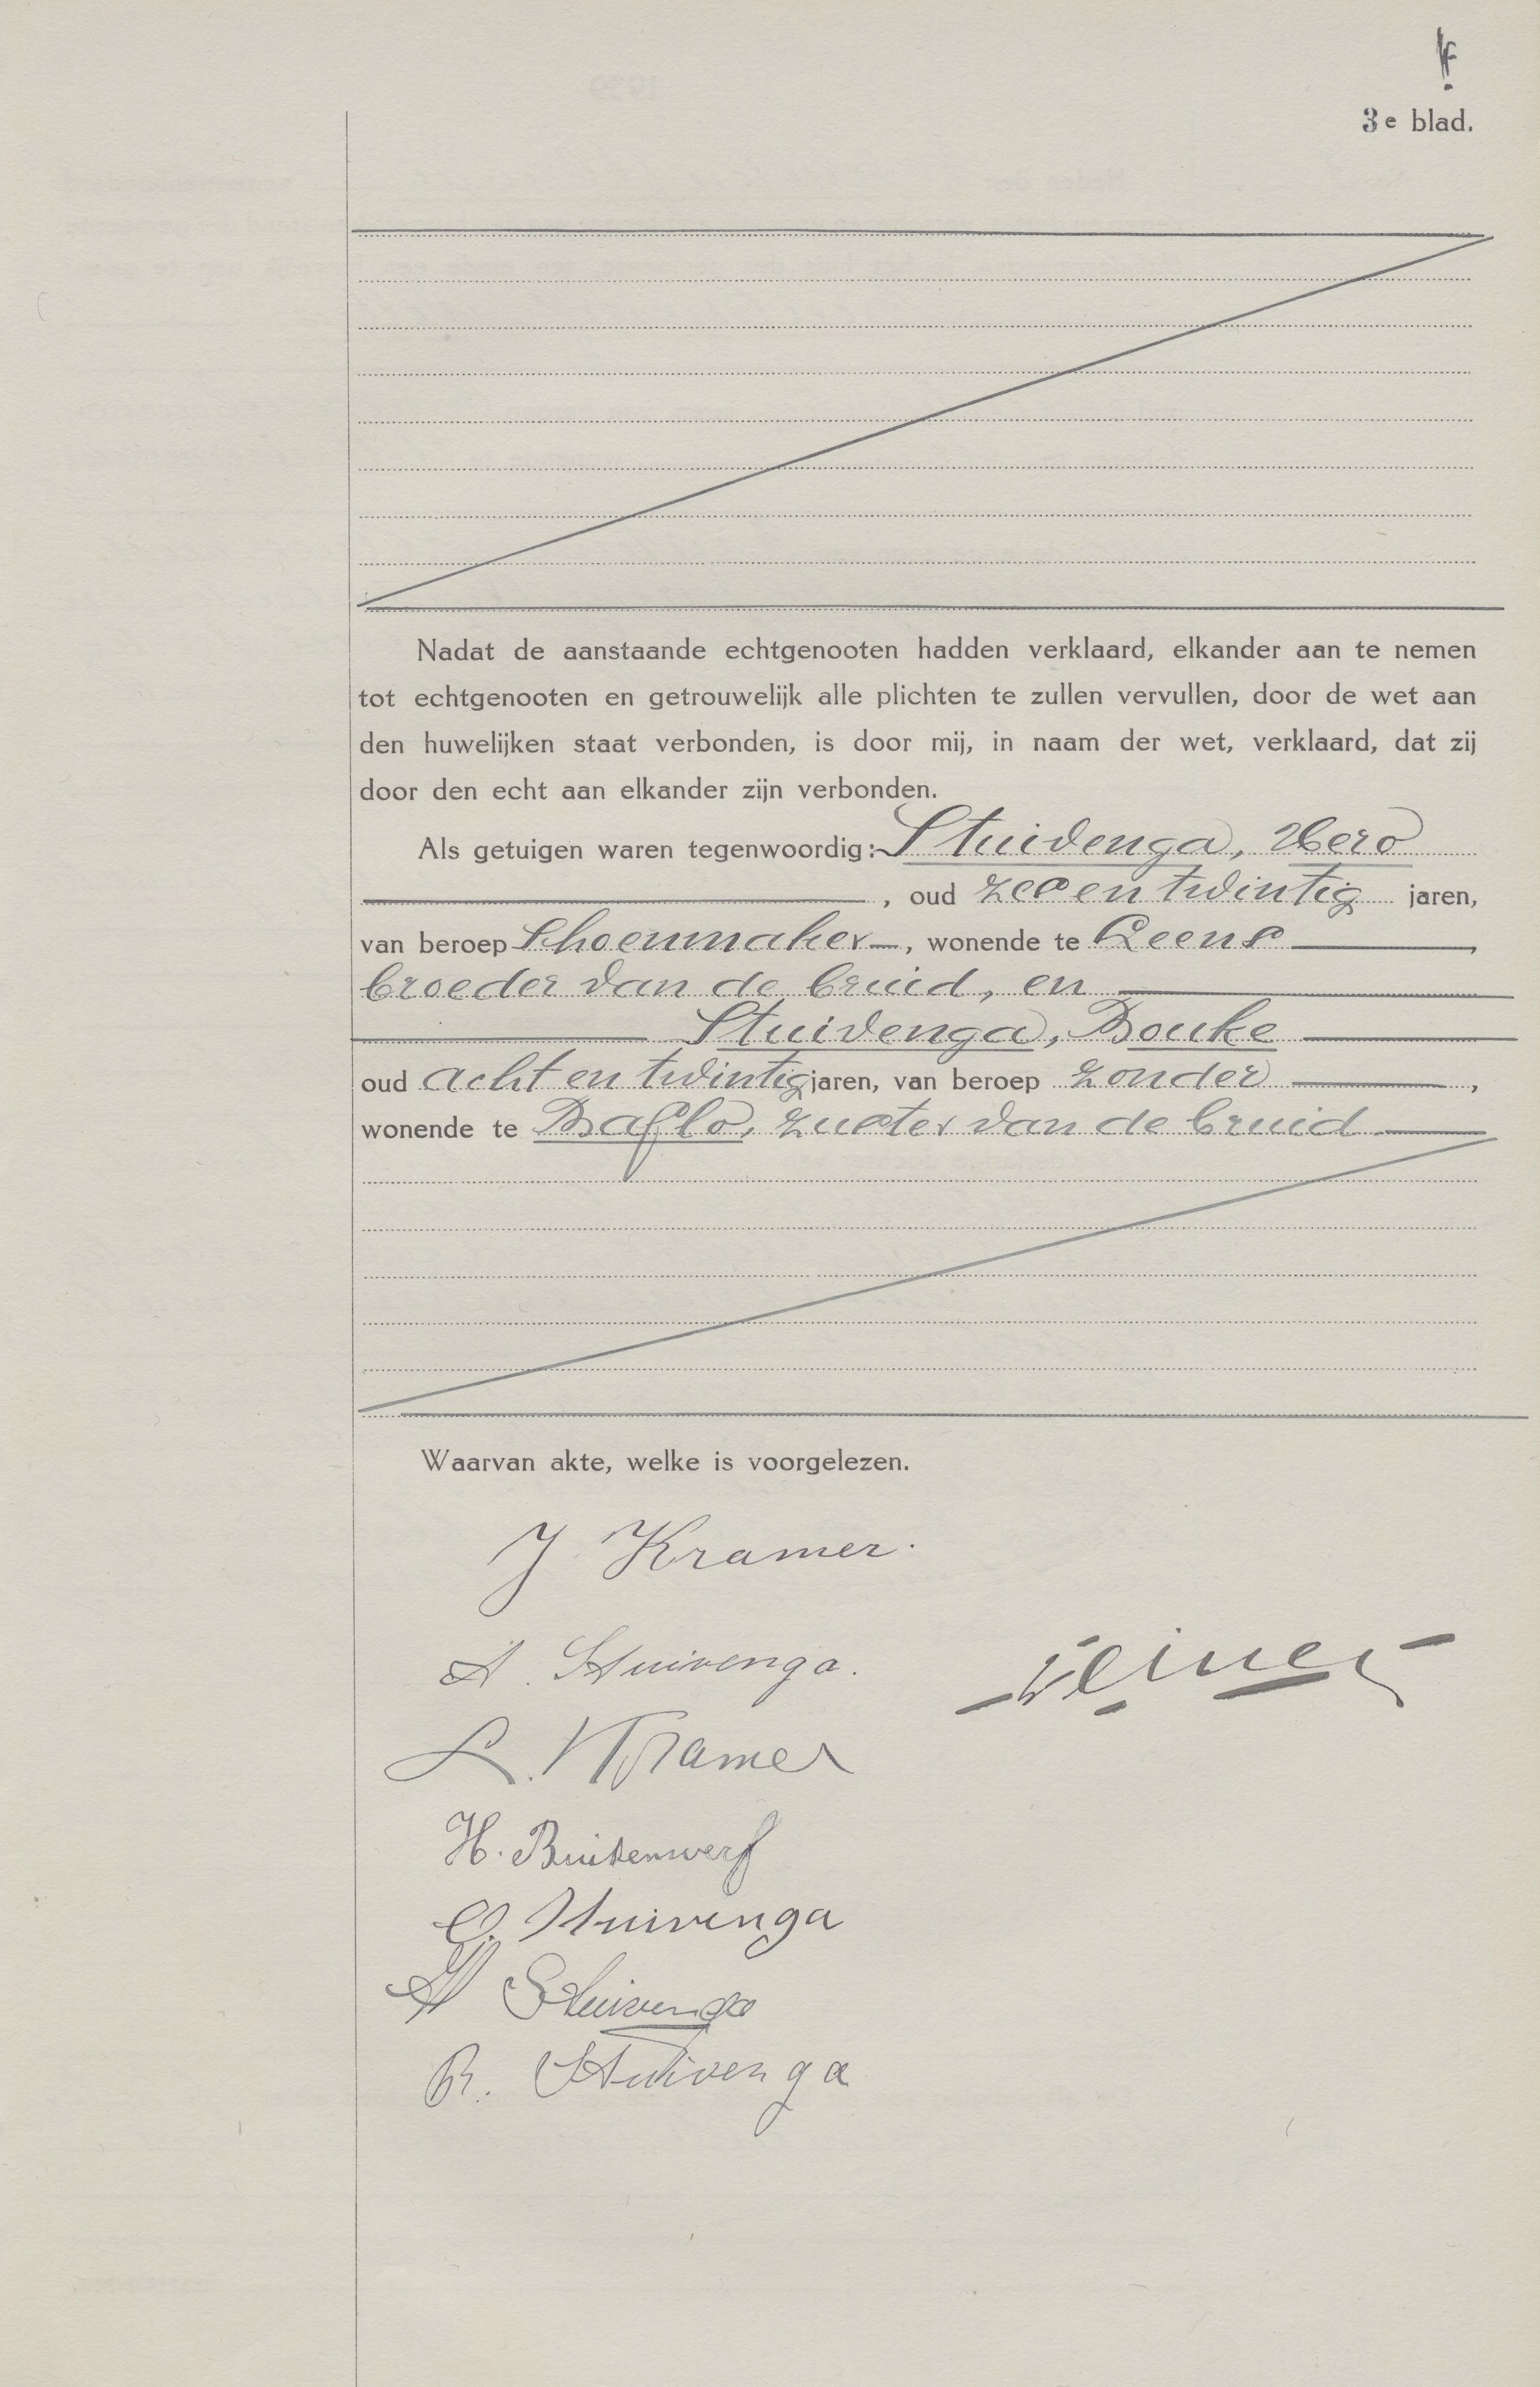 3e blad.
Nadat de aanstaande echtgenooten hadden verklaard, elkander aan te nemen
tot echtgenooten en getrouwelijk alle plichten te zullen vervullen, door de wet aan
den huwelijken staat verbonden, is door mij, in naam der wet, verklaard, dat zij
door den echt aan elkander zijn verbonden.
Als getuigen waren tegenwoordig: Stuivenga, Hero
, oud zes en twintig jaren,
van beroep schoenmaker, wonende te Leens,
broeder van de bruid, en
Stuivenga, Bouke
oud acht en twintig jaren, van beroep zonder,
wonende te Baflo, zuster van de bruid
Waarvan akte, welke is voorgelezen.
J Kramer.
A. Stuivenga.
L. Kramer
H. Buitenwerf
Stuivenga
H Stuivenga
B. Stuivenga